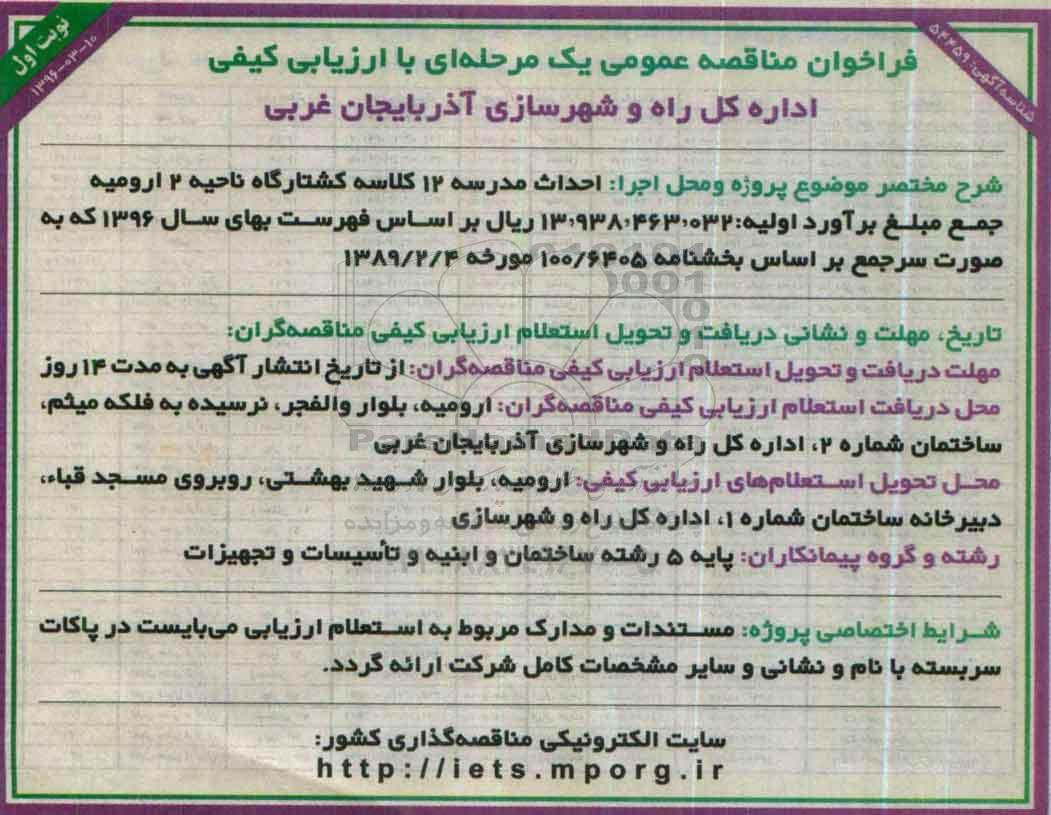 نوبت اول
۱۳۹۶-۰۳-۱۰
شناسه آگهی: ۵۴۴۵۹
فراخوان مناقصه عمومی یک مرحله‌ای با ارزیابی کیفی
اداره کل راه و شهرسازی آذربایجان غربی
شرح مختصر موضوع پروژه ومحل اجرا: احداث مدرسه ۱۲ کلاسه کشتارگاه ناحیه ۲ ارومیه
جمع مبلغ برآورد اولیه:۱۳,۹۳۸,۴۶۳,۰۳۲ ریال بر اساس فهرست بهای سال ۱۳۹۶ که به
صورت سرجمع بر اساس بخشنامه ۱۰۰/۶۴۰۵ مورخه ۱۳۸۹/۲/۴
تاریخ، مهلت و نشانی دریافت و تحویل استعلام ارزیابی کیفی مناقصه‌گران:
مهلت دریافت و تحویل استعلام ارزیابی کیفی مناقصه‌گران: از تاریخ انتشار آگهی به مدت ۱۴ روز
محل دریافت استعلام ارزیابی کیفی مناقصه‌گران: ارومیه، بلوار والفجر، نرسیده به فلکه میثم،
ساختمان شماره ۲، اداره کل راه و شهرسازی آذربایجان غربی
محل تحویل استعلام‌های ارزیابی کیفی: ارومیه، بلوار شهید بهشتی، روبروی مسجد قباء،
دبیرخانه ساختمان شماره ۱، اداره کل راه و شهرسازی
رشته و گروه پیمانکاران: پایه ۵ رشته ساختمان و ابنیه و تأسیسات و تجهیزات
شرایط اختصاصی پروژه: مستندات و مدارک مربوط به استعلام ارزیابی می‌بایست در پاکات
سربسته با نام و نشانی و سایر مشخصات کامل شرکت ارائه گردد.
سایت الکترونیکی مناقصه‌گذاری کشور:
http://iets.mporg.ir